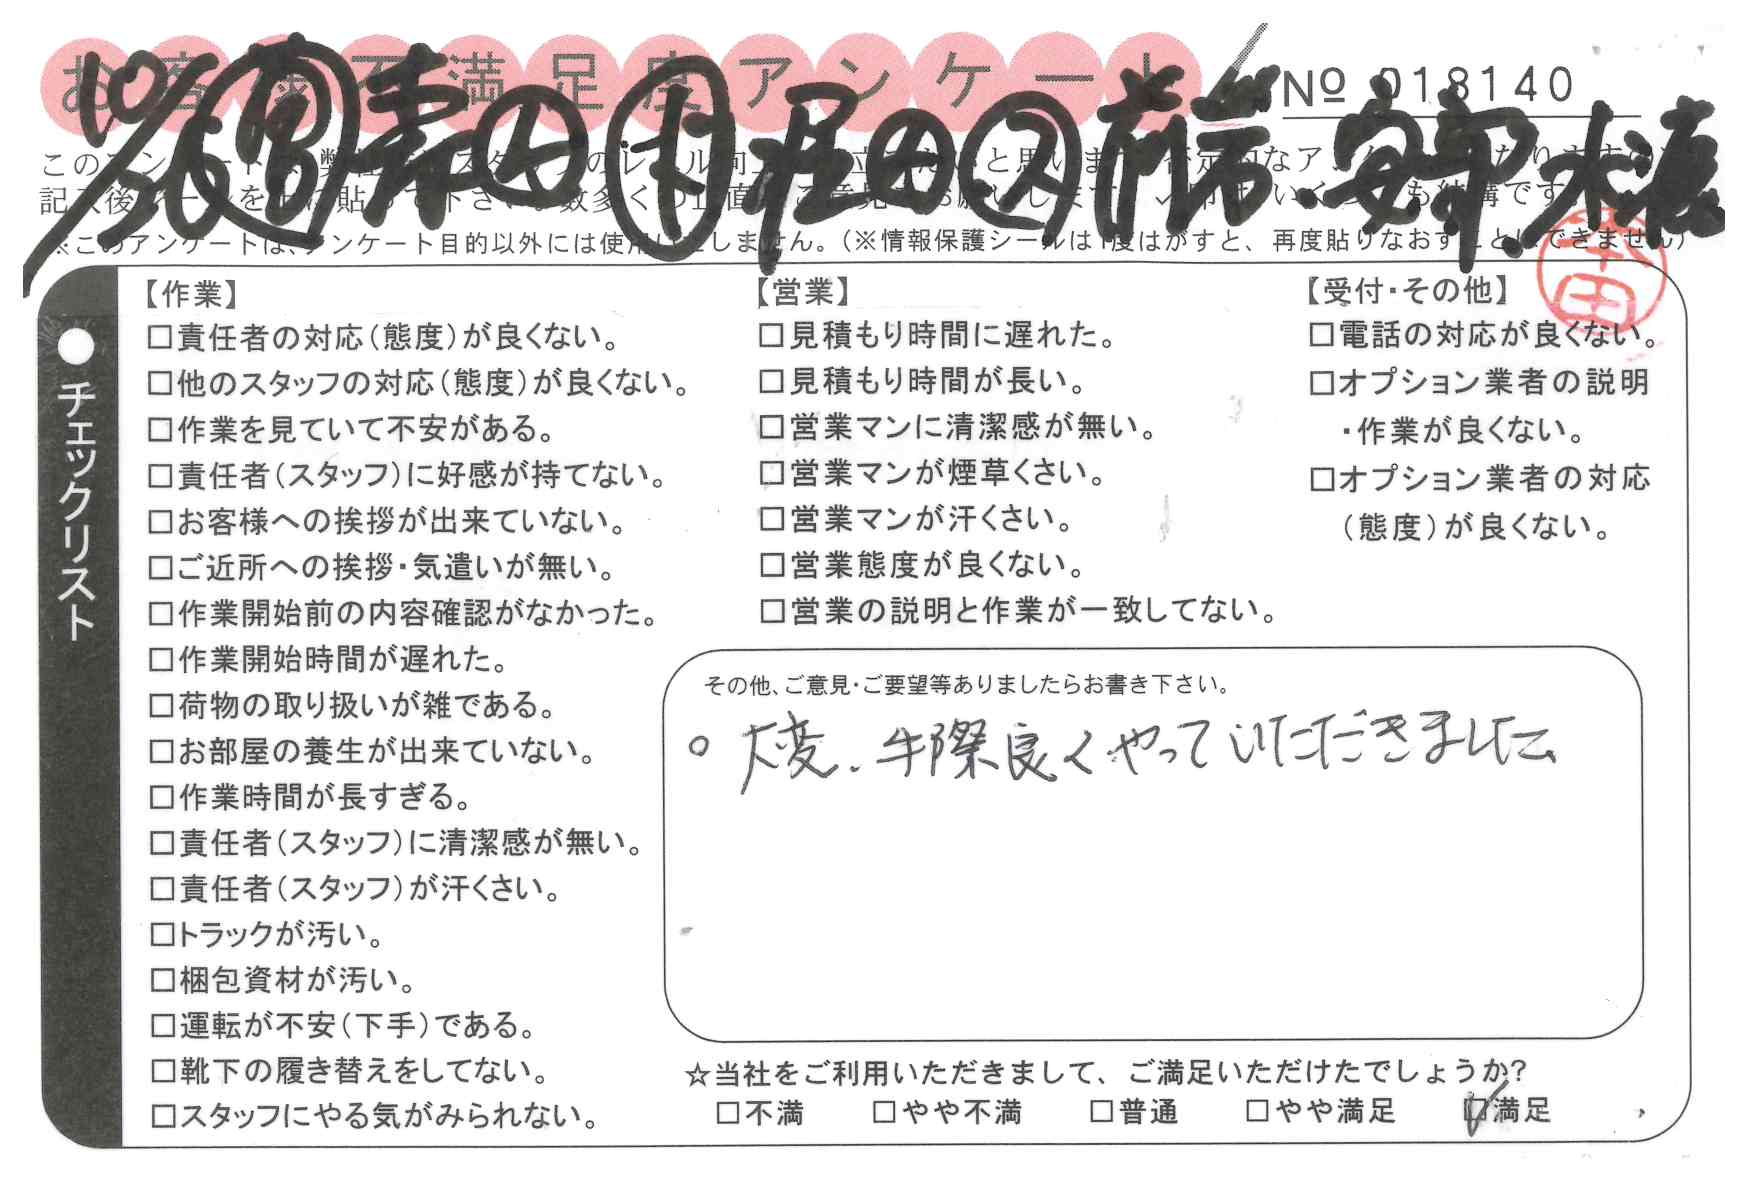 お客様不満足度アンケート
No 018140
10/26 ※このアンケートは、アンケート目的以外には使用いたしません。(※情報保護シールは1度はがすと、再度貼りなおすことはできません)
チェックリスト
【作業】
□責任者の対応(態度)が良くない。
□他のスタッフの対応(態度)が良くない。
□作業を見ていて不安がある。
□責任者(スタッフ)に好感が持てない。
□お客様への挨拶が出来ていない。
□ご近所への挨拶・気遣いが無い。
□作業開始前の内容確認がなかった。
□作業開始時間が遅れた。
□荷物の取り扱いが雑である。
□お部屋の養生が出来ていない。
□作業時間が長すぎる。
□責任者(スタッフ)に清潔感が無い。
□責任者(スタッフ)が汗くさい。
□トラックが汚い。
□梱包資材が汚い。
□運転が不安(下手)である。
□靴下の履き替えをしてない。
□スタッフにやる気がみられない。
【営業】
□見積もり時間に遅れた。
□見積もり時間が長い。
□営業マンに清潔感が無い。
□営業マンが煙草くさい。
□営業マンが汗くさい。
□営業態度が良くない。
□営業の説明と作業が一致してない。
【受付・その他】
□電話の対応が良くない。
□オプション業者の説明
・作業が良くない。
□オプション業者の対応
(態度)が良くない。
その他、ご意見・ご要望等ありましたらお書き下さい。
○大変、手際良くやっていただきました
☆当社をご利用いただきまして、ご満足いただけたでしょうか?
□不満 □やや不満 □普通 □やや満足 ☑満足